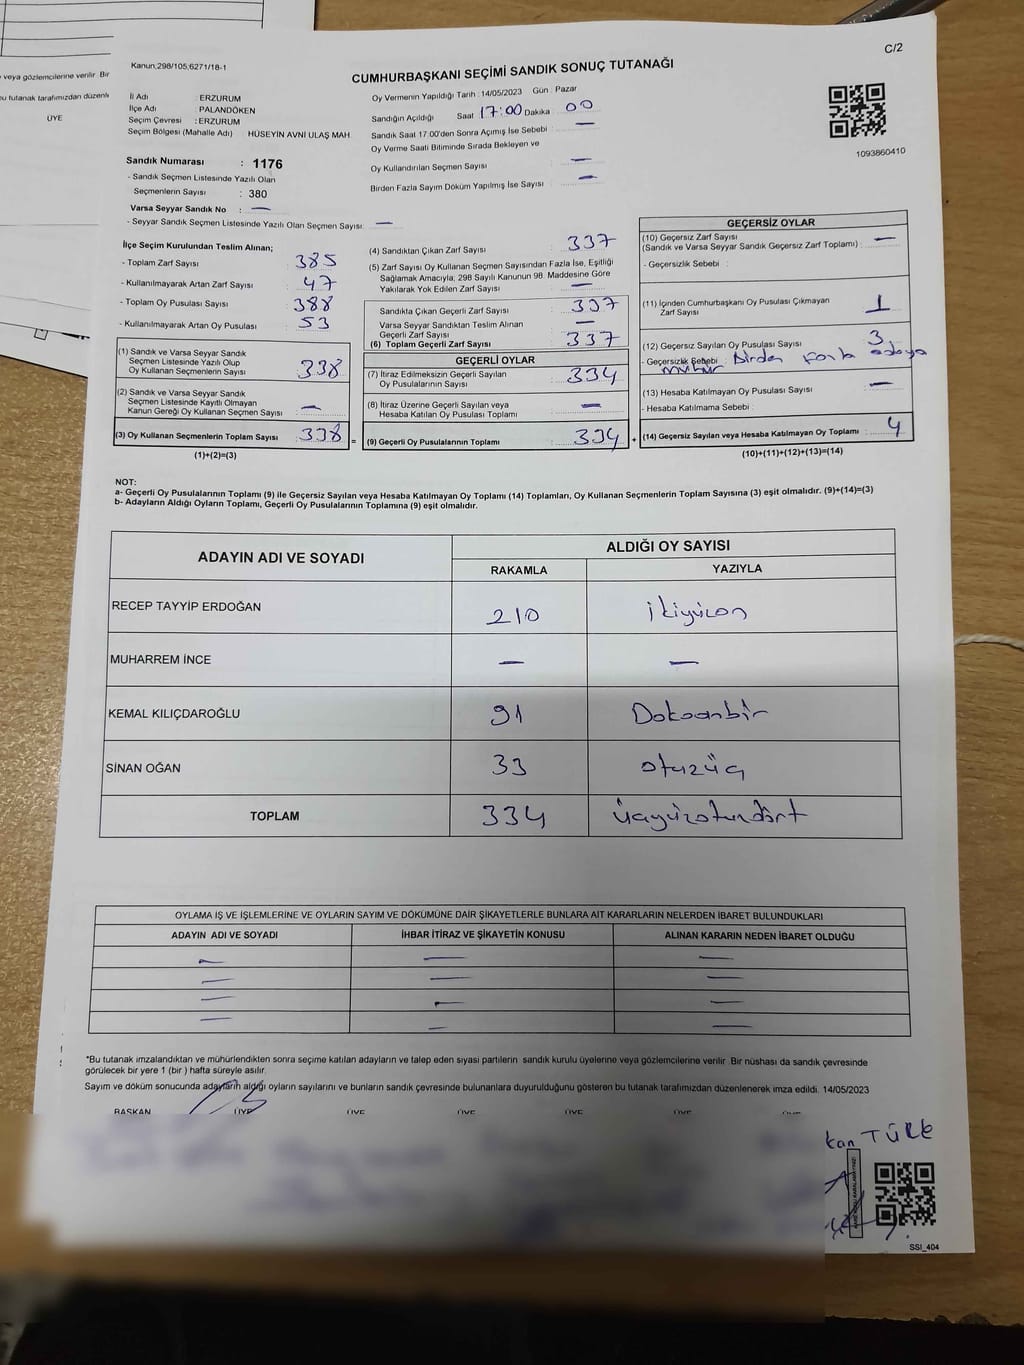 veya gözlemcilerine verilir Bir
bu tutanak tarafımızdan düzenle
ÜYE
C/2
Kanun;298/105,6271/18-1
CUMHURBAŞKANI SEÇİMİ SANDIK SONUÇ TUTANAĞI
İl Adı : ERZURUM
İlçe Adı : PALANDÖKEN
Seçim Çevresi : ERZURUM
Seçim Bölgesi (Mahalle Adı) HÜSEYİN AVNİ ULAŞ MAH
Oy Vermenin Yapıldığı Tarih :14/05/2023 Gün : Pazar
Sandığın Açıldığı Saat 17:00 Dakika 00
Sandık Saat 17:00'den Sonra Açımış İse Sebebi : —
Oy Verme Saati Bitiminde Sırada Bekleyen ve
Oy Kullandırılan Seçmen Sayısı : —
Birden Fazla Sayım Döküm Yapılmış İse Sayısı : —
1093860410
Sandık Numarası : 1176
- Sandık Seçmen Listesinde Yazılı Olan
Seçmenlerin Sayısı : 380
Varsa Seyyar Sandık No : —
- Seyyar Sandık Seçmen Listesinde Yazılı Olan Seçmen Sayısı: —
İlçe Seçim Kurulundan Teslim Alınan;
- Toplam Zarf Sayısı : 385
- Kullanılmayarak Artan Zarf Sayısı : 47
- Toplam Oy Pusulası Sayısı : 388
- Kullanılmayarak Artan Oy Pusulası : 53
(1) Sandık ve Varsa Seyyar Sandık
Seçmen Listesinde Yazılı Olup
Oy Kullanan Seçmenlerin Sayısı : 338
(2) Sandık ve Varsa Seyyar Sandık
Seçmen Listesinde Kayıtlı Olmayan
Kanun Gereği Oy Kullanan Seçmen Sayısı : —
(3) Oy Kullanan Seçmenlerin Toplam Sayısı : 338 =
(1)+(2)=(3)
(4) Sandıktan Çıkan Zarf Sayısı : 337
(5) Zarf Sayısı Oy Kullanan Seçmen Sayısından Fazla İse, Eşitliği
Sağlamak Amacıyla; 298 Sayılı Kanunun 98. Maddesine Göre
Yakılarak Yok Edilen Zarf Sayısı : —
Sandıkta Çıkan Geçerli Zarf Sayısı : 337
Varsa Seyyar Sandıktan Teslim Alınan
Geçerli Zarf Sayısı : —
(6) Toplam Geçerli Zarf Sayısı : 337
GEÇERLİ OYLAR
(7) İtiraz Edilmeksizin Geçerli Sayılan
Oy Pusulalarının Sayısı : 334
(8) İtiraz Üzerine Geçerli Sayılan veya
Hesaba Katılan Oy Pusulası Toplamı : —
(9) Geçerli Oy Pusulalarının Toplamı : 334 +
GEÇERSİZ OYLAR
(10) Geçersiz Zarf Sayısı
(Sandık ve Varsa Seyyar Sandık Geçersiz Zarf Toplamı) : —
- Geçersizlik Sebebi :
(11) İçinden Cumhurbaşkanı Oy Pusulası Çıkmayan
Zarf Sayısı : 1
(12) Geçersiz Sayılan Oy Pusulası Sayısı : 3
- Geçersizlik Sebebi : Birden fazla adaya
mühür
(13) Hesaba Katılmayan Oy Pusulası Sayısı : —
- Hesaba Katılmama Sebebi :
(14) Geçersiz Sayılan veya Hesaba Katılmayan Oy Toplamı : 4
(10)+(11)+(12)+(13)=(14)
NOT:
a- Geçerli Oy Pusulalarının Toplamı (9) ile Geçersiz Sayılan veya Hesaba Katılmayan Oy Toplamı (14) Toplamları, Oy Kullanan Seçmenlerin Toplam Sayısına (3) eşit olmalıdır. (9)+(14)=(3)
b- Adayların Aldığı Oyların Toplamı, Geçerli Oy Pusulalarının Toplamına (9) eşit olmalıdır.
ADAYIN ADI VE SOYADI ALDIĞI OY SAYISI
RAKAMLA YAZIYLA
RECEP TAYYİP ERDOĞAN 210 ikiyüzon
MUHARREM İNCE — —
KEMAL KILIÇDAROĞLU 91 Doksanbir
SİNAN OĞAN 33 otuzüç
TOPLAM 334 üçyüzotuzdört
OYLAMA İŞ VE İŞLEMLERİNE VE OYLARIN SAYIM VE DÖKÜMÜNE DAİR ŞİKAYETLERLE BUNLARA AİT KARARLARIN NELERDEN İBARET BULUNDUKLARI
ADAYIN ADI VE SOYADI İHBAR İTİRAZ VE ŞİKAYETİN KONUSU ALINAN KARARIN NEDEN İBARET OLDUĞU
— — —
— — —
— — —
— — —
*Bu tutanak imzalandıktan ve mühürlendikten sonra seçime katılan adayların ve talep eden siyasi partilerin sandık kurulu üyelerine veya gözlemcilerine verilir .Bir nüshası da sandık çevresinde
görülecek bir yere 1 (bir ) hafta süreyle asılır.
Sayım ve döküm sonucunda adayların aldığı oyların sayılarını ve bunların sandık çevresinde bulunanlara duyurulduğunu gösteren bu tutanak tarafımızdan düzenlenerek imza edildi. 14/05/2023
BAŞKAN ÜYE ÜYE ÜYE ÜYE ÜYE ÜYE
kan TÜRK
SSI_404